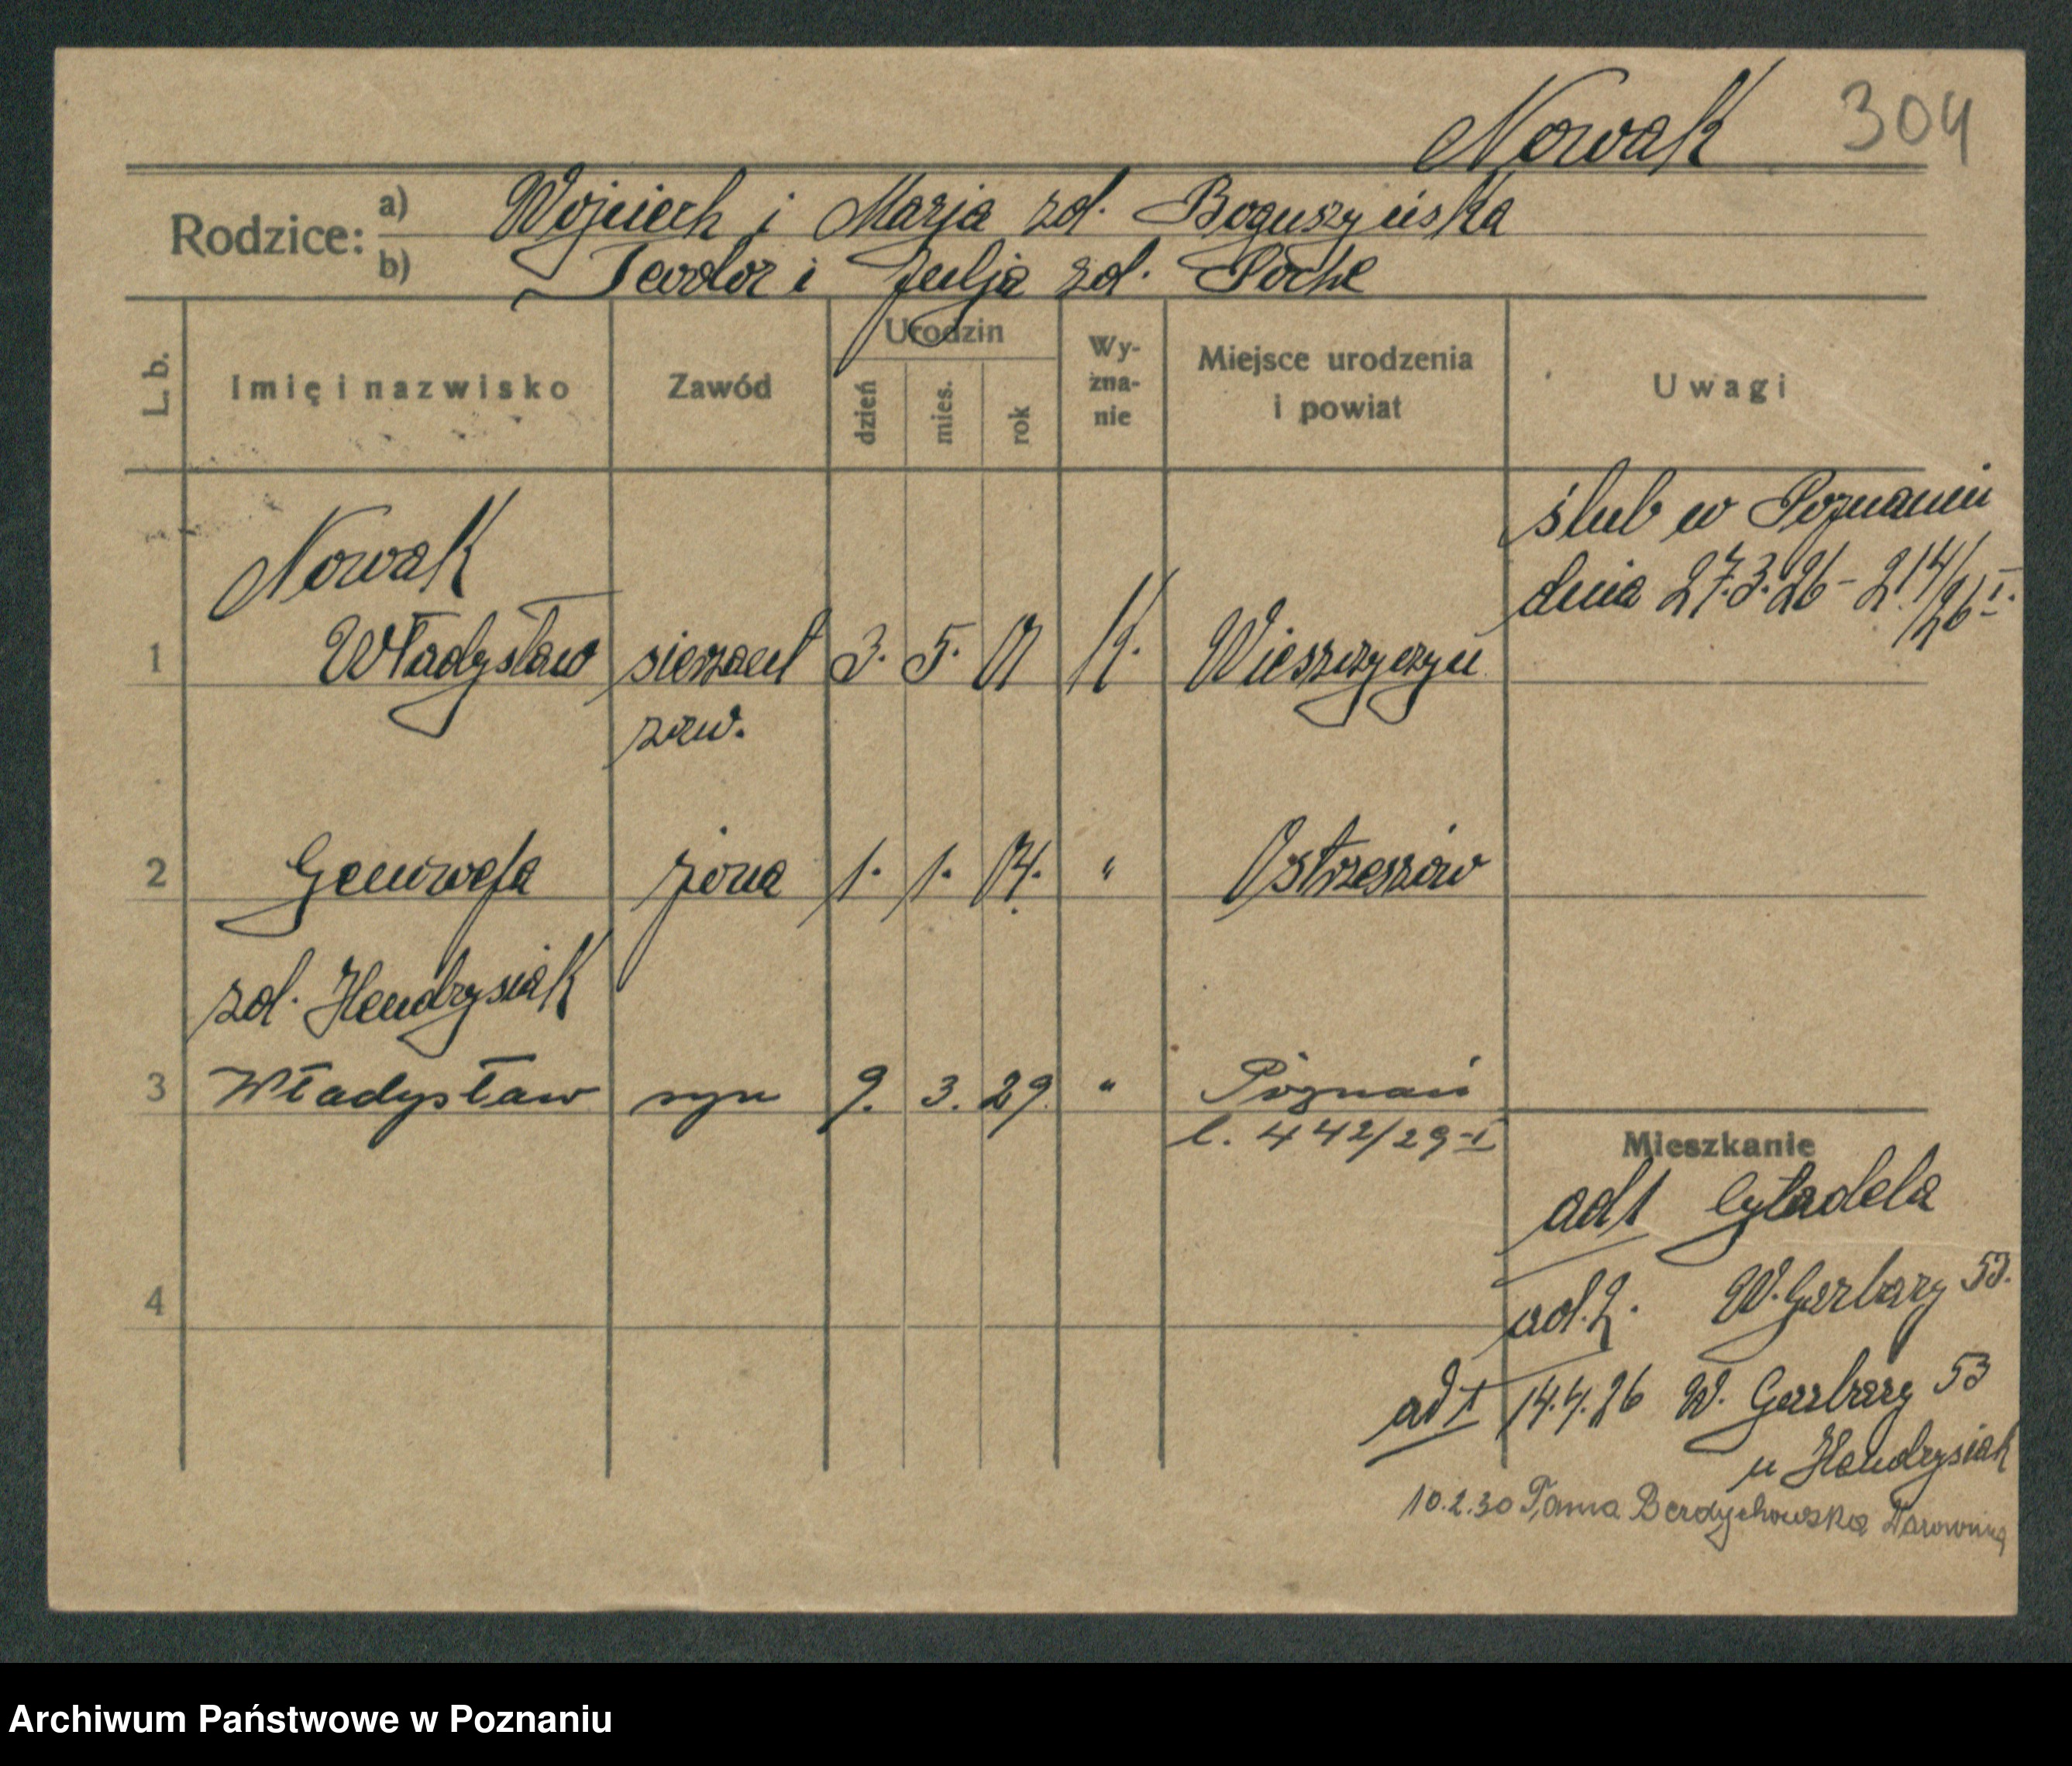 Nowak 304
Rodzice: a) Wojciech i Marja zd. Boguszyńska
b) Teodor i Julja zd. Poche
L. b. Imię i nazwisko Zawód Urodzin dzień mies. rok Wy-zna-nie Miejsce urodzenia i powiat Uwagi
ślub w Poznaniu
dnia 27.3.26 - 214/26 I.
Nowak
1 Władysław sierżant 3. 5. 01 K. Wieszczyczyn
zaw.
2 Genowefa żona 1. 1. 04. " Ostrzeszów
zd. Hendrysiak
3 Władysław syn 9. 3. 29. " Poznań
l. 442/29-I
Mieszkanie
ad 1 Cytadela
4
ad. 2. W. Garbary 53.
ad I 14.4.26 W. Garbary 53
u Hendrysiak
10.2.30 Tama Berdychowska
Archiwum Państwowe w Poznaniu